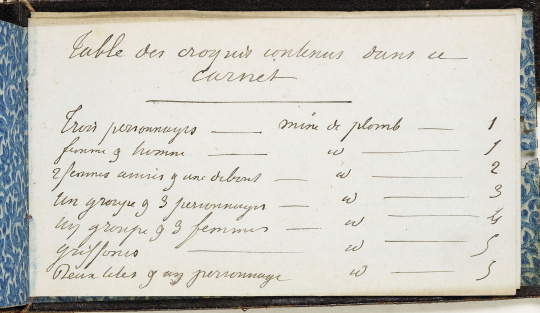 Table des croquis contenus dans ce
carnet
Trois personnages — mine de plomb — 1
femme & homme — id — 1
2 femmes assises & une debout — id — 2
un groupe & 3 personnages — id — 3
un groupe & 3 femmes — id — 4
griffonis — id — 5
Deux têtes & un personnage id — 5